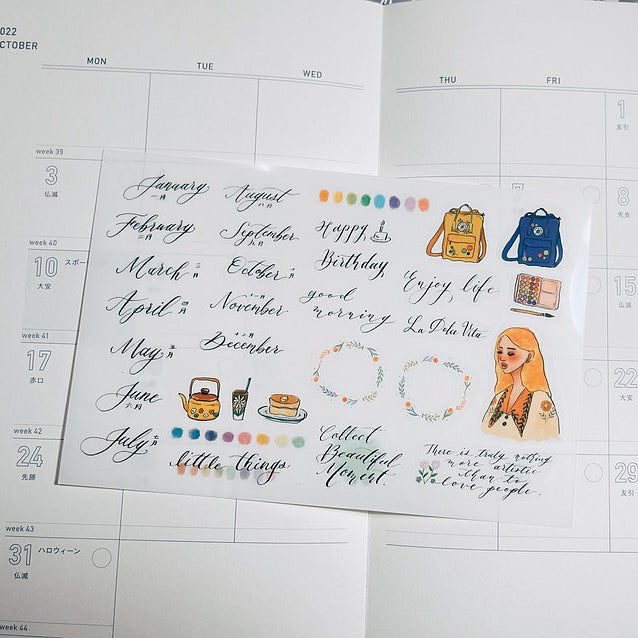 022
CTOBER
MON
TUE
WED
THU
FRI
week 39
3
仏滅
week 40
10
大安
スポー
week 41
17
赤口
week 42
24
先勝
week 43
31
仏滅
ハロウィーン
week 44
1
友引
7
8
先負
15
大安
22
29
友引
January
一月
February
二月
March
三月
April
四月
May
五月
June
六月
July
七月
August
八月
September
九月
October
十月
November
十一月
December
十二月
Happy
Birthday
good
morning
Enjoy life
La Dolce Vita
little things
Collect
Beautiful
Moment
There is truly nothing
more artistic
than to
love people.